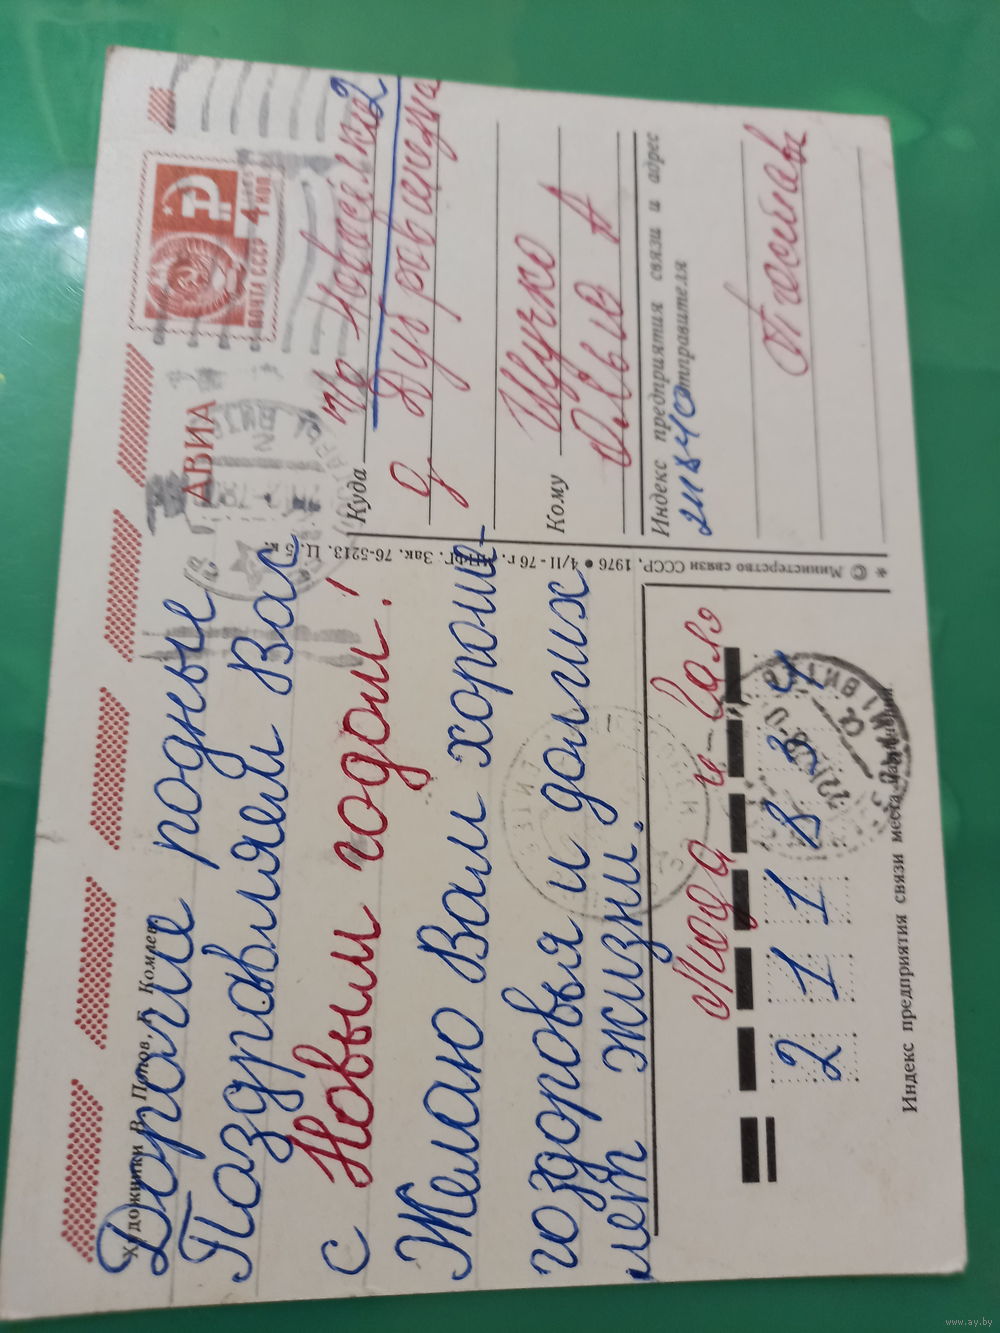 Художники В. Попов, Б. Комлев
Дорогие родные
Паздравляем Вас
с Новым годом!
Желаю Вам хороше-
го здоровья и долгих
лет жизни.
Люда и Саля
2 1 1 8 3 4
Индекс предприятия связи места
* © Министерство связи СССР, 1976 ● 4/II-76 г. Зак. 76-5213. Ц. 5 к.
АВИА
ПОЧТА СССР 4 КОП
Куда
п/о Новасёлки 2
д Дубравщена
Кому
Шучко
Илью А
Индекс предприятия связи и адрес
отправителя
www.ay.by